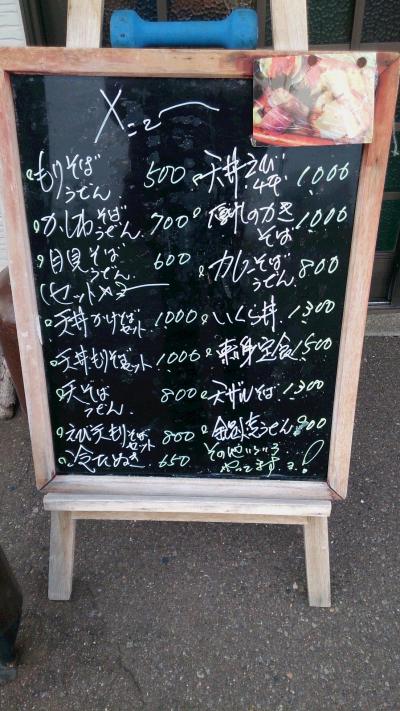 メニュー
もりそば うどん 500
かしわそば うどん 700
月見そば うどん 600
セットメニュー
天丼かけそばセット 1,000
天丼もりそばセット 1,000
天そば うどん 800
えび天もりそばセット 800
冷たぬき 650
天丼 1,000
そば 1,000
カレーそば うどん 800
いくら丼 1,300
定食 1,500
天ザルそば 1,300
鍋焼うどん 900
その他いろいろ
やってます!